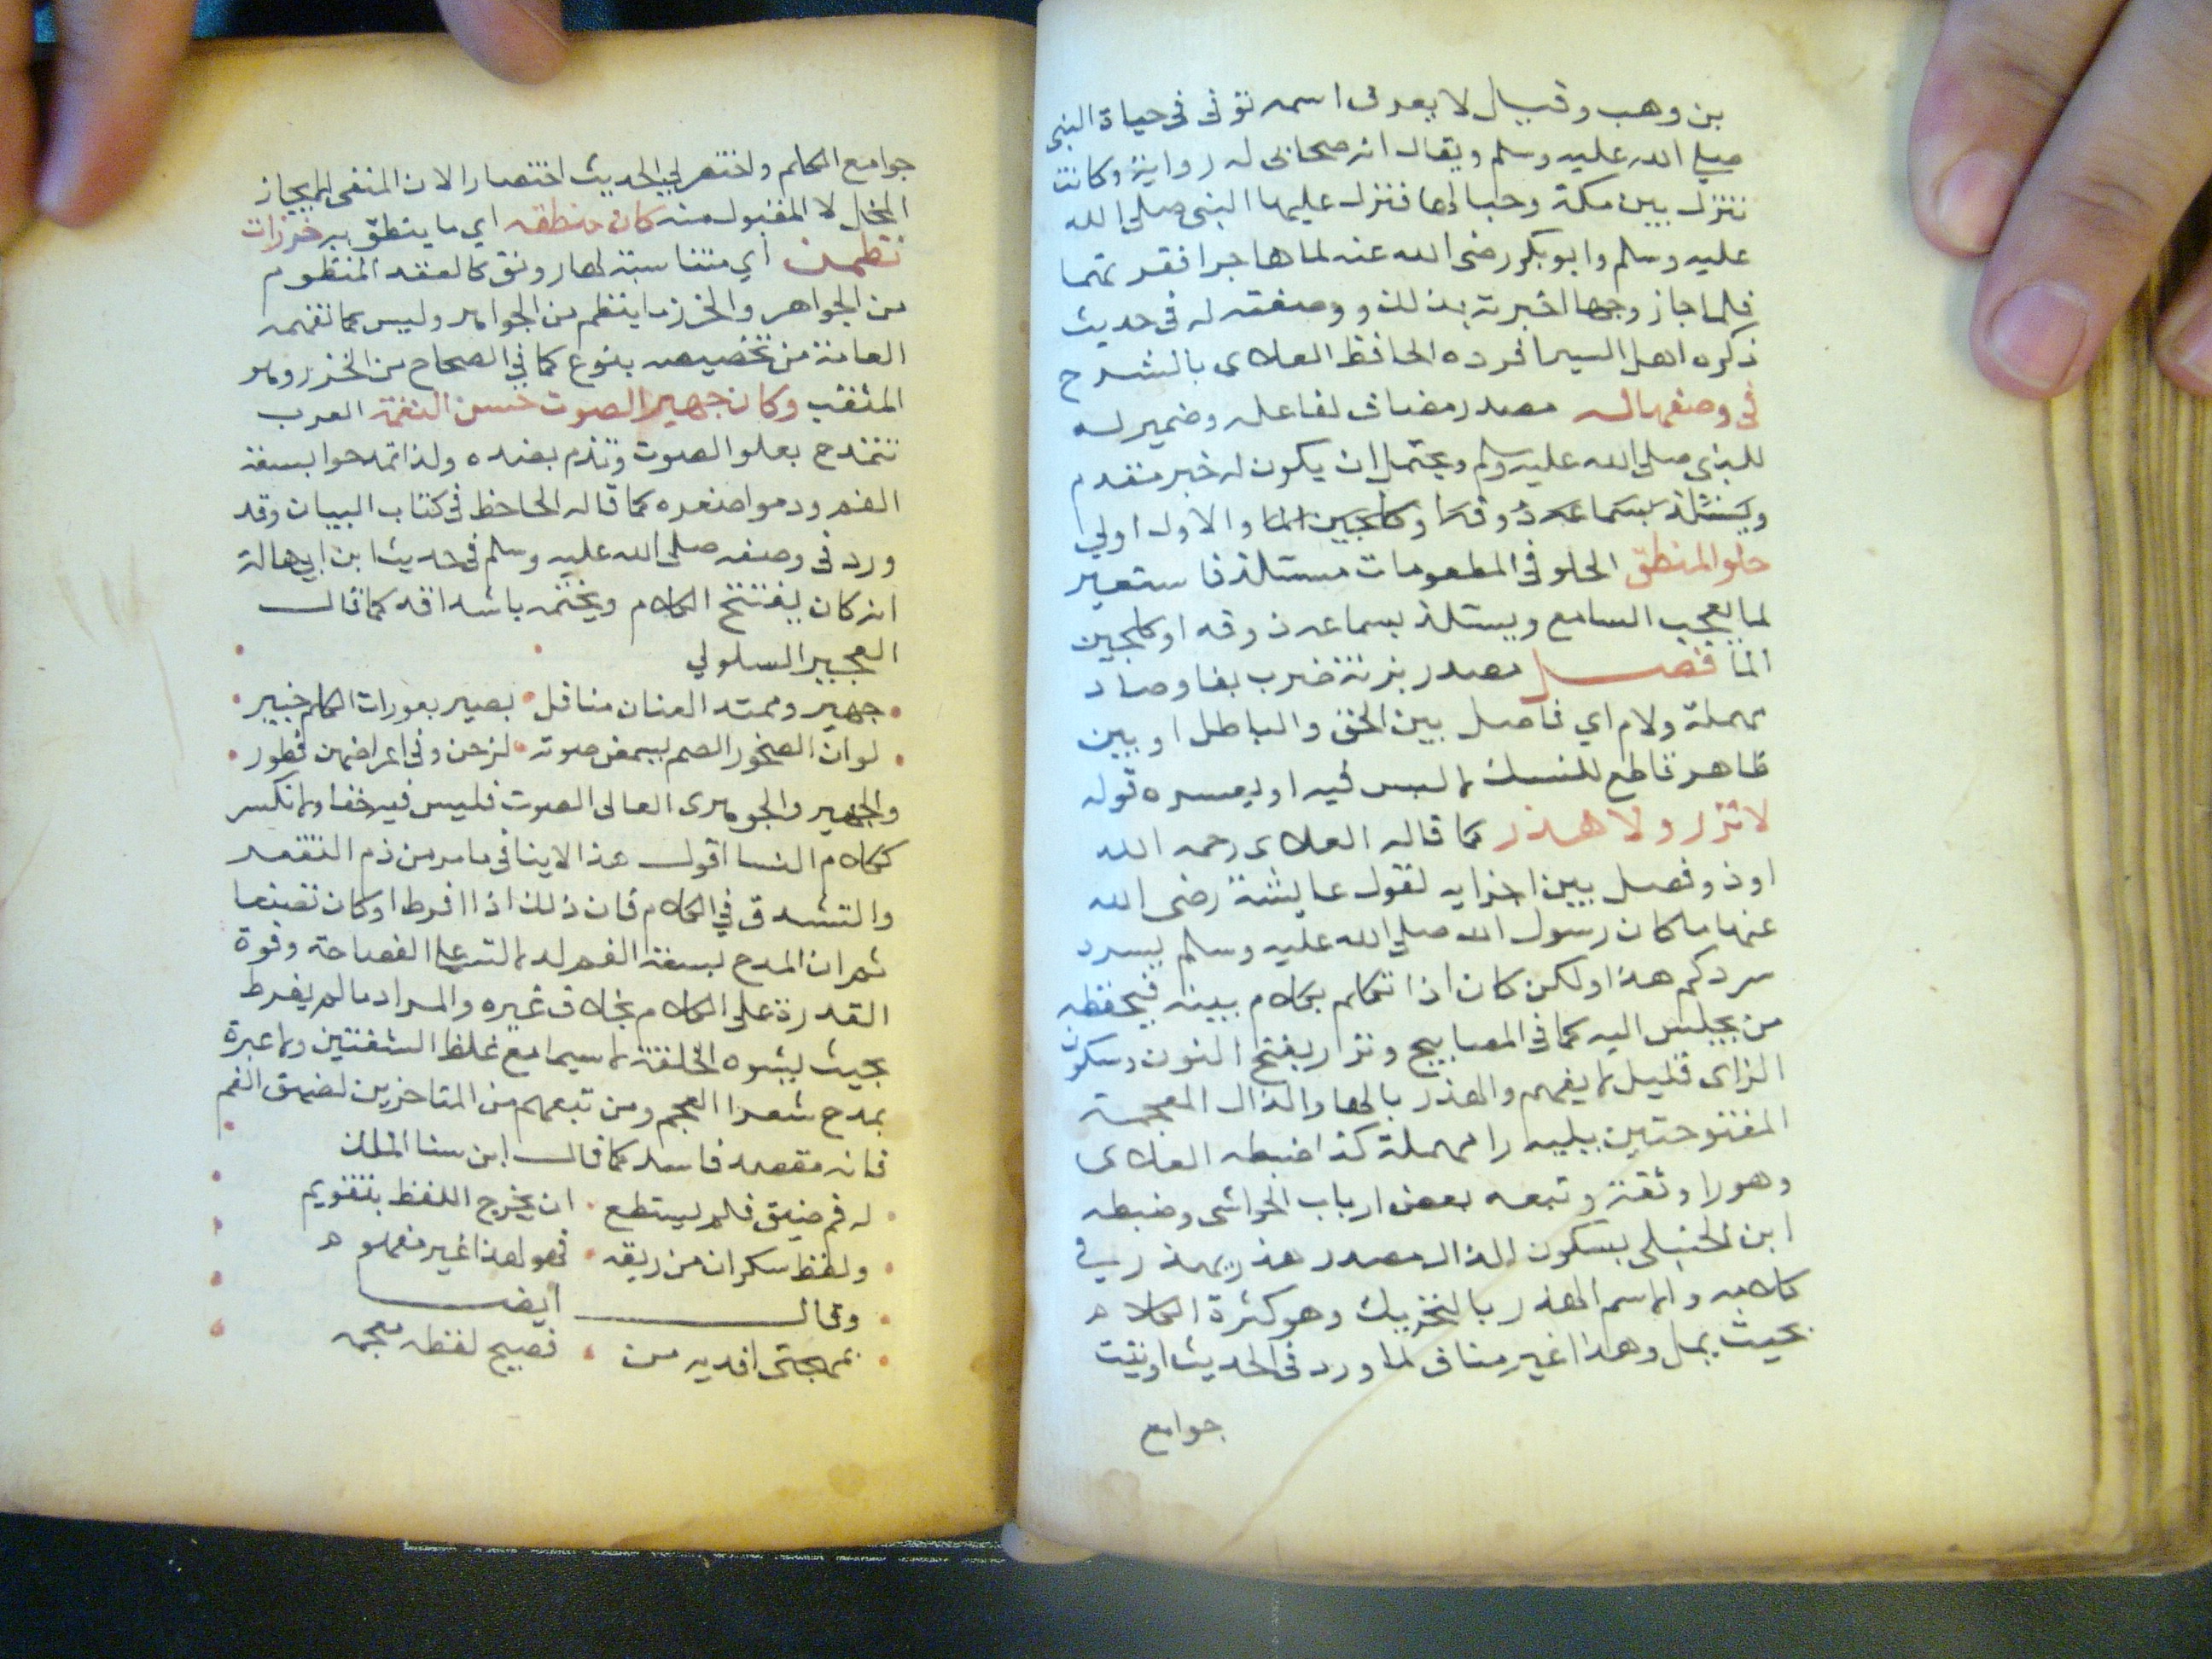 بن وهب وقيل لا يعرف اسمه توفى فى حياة النبى
صلى الله عليه وسلم ويقال انه صحابى له رواية وكانت
تنزل بين مكة وحبالها فنزل عليها النبى صلى الله
عليه وسلم وابو بكر رضى الله عنه لما هاجرا فقرتهما
فلما جاز وجها اخبرته بذلك ووصفته له فى حديث
ذكره اهل السير افرده الحافظ العلاى بالشرح
فى وصفها له مصدر مضاف لفاعله وضمير له
للنبى صلى الله عليه وسلم ويحتمل ان يكون له خبر مقدم
ويستلذ بسماعه ذوقه وكالجين الما والاول اولي
حلو المنطق الحلو فى المطعومات مستلذ فاستعير
لما يعجب السامع ويستلذ بسماعه ذوقه او كالجين
الما فصل مصدر بزنة ضرب بفا وصاد
مهملة ولام اي فاصل بين الحق والباطل او بين
ظاهر قاطع للشك لا لبس فيه او يفسره قوله
لا نزر ولا هذر كما قاله العلاى رحمه الله
او ذو فصل بين اجزايه لقول عايشة رضى الله
عنها ما كان رسول الله صلى الله عليه وسلم يسرد
سردكم هذا ولكن كان اذا تكلم بكلام بينه فيحفظه
من يجلس اليه كما فى المصابيح ونزر بفتح النون وسكون
الزاى قليل لا يفهم والهذر بالها والذال المعجمة
المفتوحتين يليه را مهملة كذا ضبطه العلاى
وهو راو ثقة وتبعه بعض ارباب الحواشى وضبطه
ابن الحنبلى بسكون الذال مصدر هذر يهذر فى
كلامه والاسم الهذر بالتحريك وهو كثرة الكلام
بحيث يمل وهذا غير مناف لما ورد فى الحديث اوتيت
جوامع
جوامع الكلم واختصر لي الحديث اختصارا لان المنفى الايجاز
المخل لا المقبول منه كان منطقه اي ما ينطق به خرزات
نظمن اي متناسبة لها رونق كالعقد المنظوم
من الجواهر والخرز ما ينظم من الجواهر وليس كما تفهمه
العامة من تخصيصه بنوع كما في الصحاح من الخرز وهو
المثقب وكان جهير الصوت حسن النغمة العرب
تتمدح بعلو الصوت وتذم بضده ولذا تمدحوا بسعة
الفم وذموا صغره كما قاله الجاحظ فى كتاب البيان وقد
ورد فى وصفه صلى الله عليه وسلم فى حديث ابن ابي هالة
انه كان يفتتح الكلام ويختمه باشداقه كما قال
العجير السلولي
جهير وممتد العنان مناقل بصير بعورات الكلام خبير
لو ان الصخور الصم يسمعن صوته لرحن وفى اعراضهن فطور
والجهير والجوهرى العالى الصوت فليس فيه خفا ولا تكسر
ككلام النسا اقول هذا لا ينافى ما مر من ذم التقعر
والتشدق في الكلام فان ذلك اذا افرط او كان تصنعا
ثم ان المدح بسعة الفم لدلالته على الفصاحة وقوة
القدرة على الكلام بخلاف غيره والمراد ما لم يفرط
بحيث يشوه الخلقة لا سيما مع غلظ الشفتين ولا عبرة
بمدح شعرا العجم ومن تبعهم من المتاخرين لضيق الفم
فانه مقصد فاسد كما قال ابن سنا الملك
له فم ضيق فلم يستطع ان يخرج اللفظ بتقويم
ولفظ سكران من ريقه فهو لهذا غير مفهوم
وقال ايضا
بمهجتى افديه من فصيح لفظه معجمه